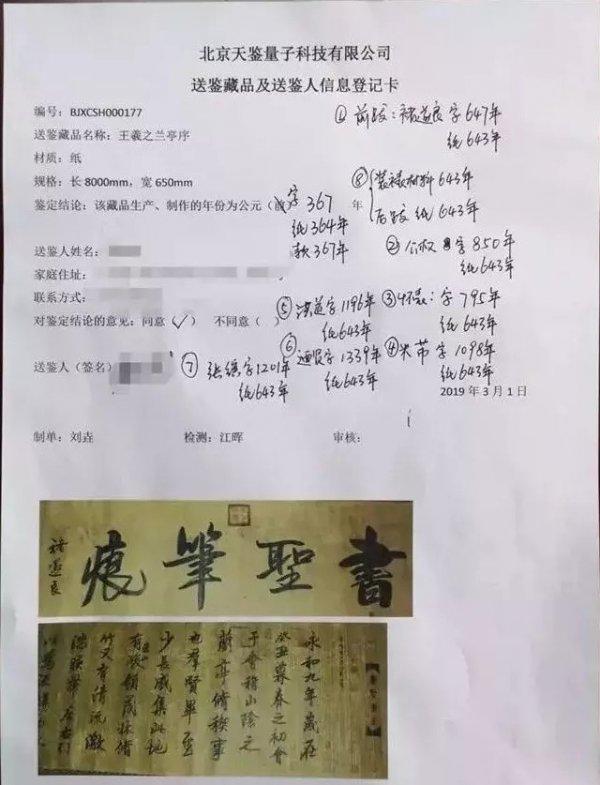 北京天鉴量子科技有限公司
送鉴藏品及送鉴人信息登记卡
编号：BJXCSH000177
送鉴藏品名称：王羲之兰亭序
材质：纸
规格：长 8000mm，宽 650mm
鉴定结论：该藏品生产、制作的年份为公元（前 字 367 年
纸 364年
款 367年
① 前跋：褚遂良 字 647年
纸 643年
⑧ 装裱材料 643年
后跋 纸 643年
② 公权 字 850年
纸 643年
送鉴人姓名：
家庭住址：
联系方式：
③ 怀素：字 795年
纸 643年
④ 米芾 字 1098年
纸 643年
⑤ 字 1196年
纸 643年
⑥ 字 1339年
纸 643年
⑦ 张 字 1201年
纸 643年
对鉴定结论的意见：同意（✓） 不同意（ ）
送鉴人（签名）
2019 年 3 月 1 日
制单：刘垚 检测：江晖 审核：
書聖筆痕
褚遂良
永和九年歲在
癸丑暮春之初會
于會稽山陰之
蘭亭脩稧事
也群賢畢至
少長咸集此地
有峻領茂林脩
竹又有清流激